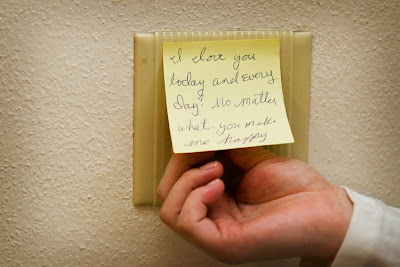 I love you
today and every
day! No matter
what. you make
me happy